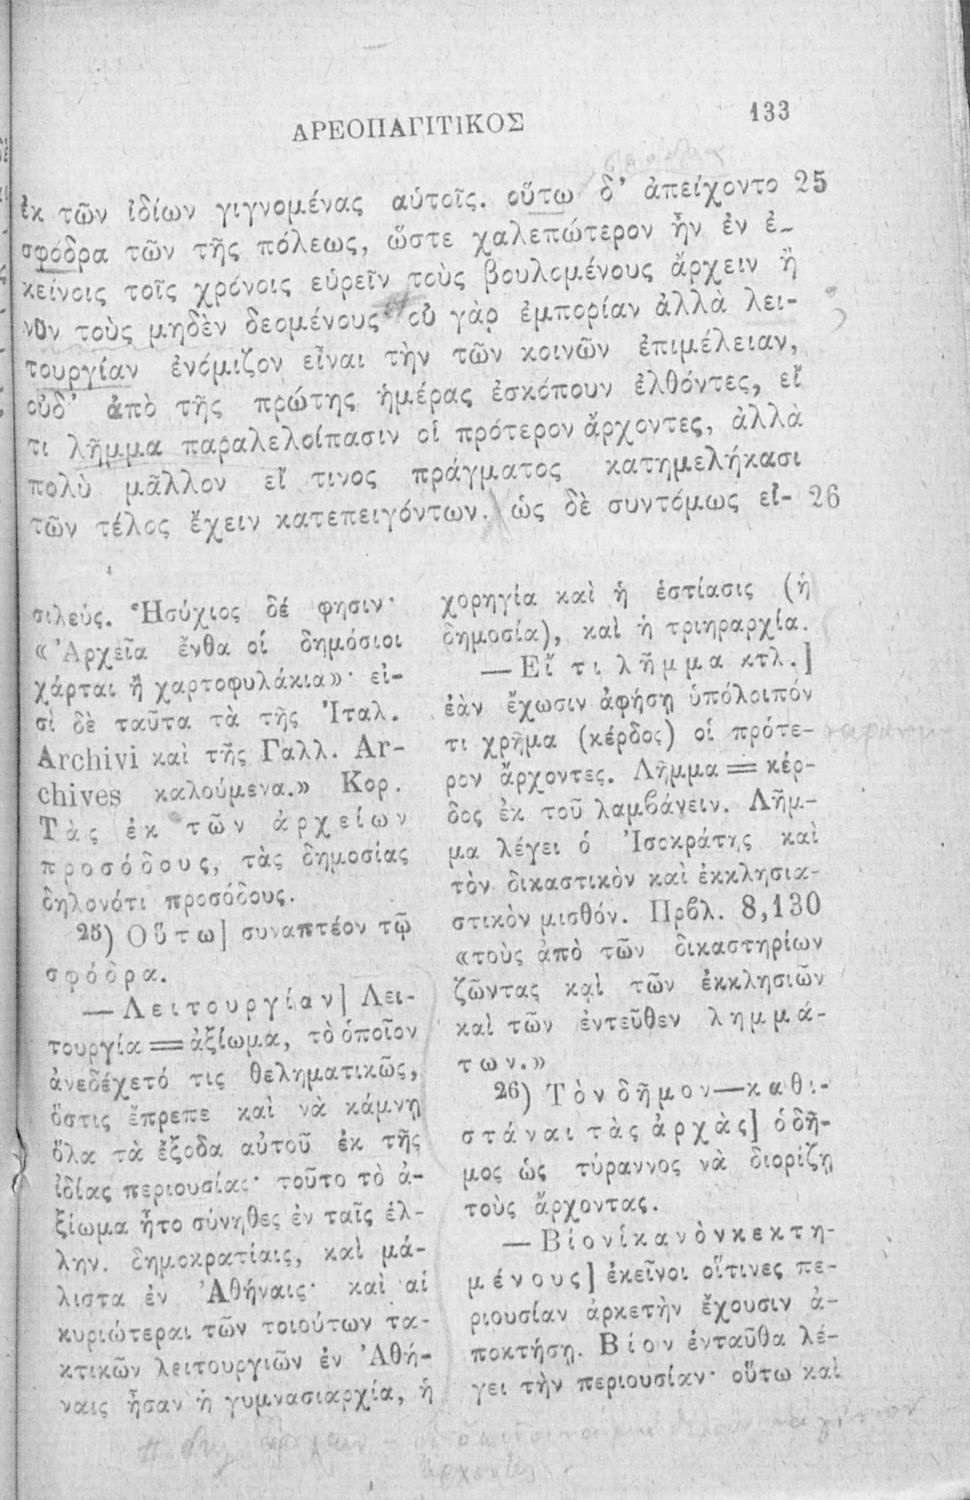 ΑΡΕΟΠΑΓΙΤΙΚΟΣ 133
ἐκ τῶν ἰδίων γιγνομένας αὐτοῖς. οὕτω δ’ ἀπείχοντο 25
σφόδρα τῶν τῆς πόλεως, ὥστε χαλεπώτερον ἦν ἐν ἐ-
κείνοις τοῖς χρόνοις εὑρεῖν τοὺς βουλομένους ἄρχειν ἢ
νῦν τοὺς μηδὲν δεομένους οὐ γὰρ ἐμπορίαν ἀλλὰ λει-
τουργίαν ἐνόμιζον εἶναι τὴν τῶν κοινῶν ἐπιμέλειαν,
οὐδ’ ἀπὸ τῆς πρώτης ἡμέρας ἐσκόπουν ἐλθόντες, εἴ
τι λῆμμα παραλελοίπασιν οἱ πρότερον ἄρχοντες, ἀλλὰ
πολὺ μᾶλλον εἴ τινος πράγματος κατημελήκασι
τῶν τέλος ἔχειν κατεπειγόντων. ὡς δὲ συντόμως εἰ- 26
σιλεύς. Ἡσύχιος δέ φησιν·
«Ἀρχεῖα ἔνθα οἱ δημόσιοι
χάρται ἢ χαρτοφυλάκια»· εἰ-
σὶ δὲ ταῦτα τὰ τῆς Ἰταλ.
Archivi καὶ τῆς Γαλλ. Ar-
chives καλούμενα.» Κορ.
Τὰς ἐκ τῶν ἀρχείων
προσόδους, τὰς δημοσίας
δηλονότι προσόδους.
25) Οὕτω] συναπτέον τῷ
σφόδρα.
— Λειτουργίαν] Λει-
τουργία = ἀξίωμα, τὸ ὁποῖον
ἀνεδέχετό τις θεληματικῶς,
ὅστις ἔπρεπε καὶ νὰ κάμνῃ
ὅλα τὰ ἔξοδα αὐτοῦ ἐκ τῆς
ἰδίας περιουσίας· τοῦτο τὸ ἀ-
ξίωμα ἦτο σύνηθες ἐν ταῖς ἑλ-
λην. δημοκρατίαις, καὶ μά-
λιστα ἐν Ἀθήναις· καὶ αἱ
κυριώτεραι τῶν τοιούτων τα-
κτικῶν λειτουργιῶν ἐν Ἀθή-
ναις ἦσαν ἡ γυμνασιαρχία, ἡ
χορηγία καὶ ἡ ἑστίασις (ἡ
δημοσία), καὶ ἡ τριηραρχία.
— Εἴ τι λῆμμα κτλ.]
ἐὰν ἔχωσιν ἀφήσῃ ὑπόλοιπόν
τι χρῆμα (κέρδος) οἱ πρότε-
ρον ἄρχοντες. Λῆμμα = κέρ-
δος ἐκ τοῦ λαμβάνειν. Λῆμ-
μα λέγει ὁ Ἰσοκράτης καὶ
τὸν δικαστικὸν καὶ ἐκκλησια-
στικὸν μισθόν. Πρβλ. 8,130
«τοὺς ἀπὸ τῶν δικαστηρίων
ζῶντας καὶ τῶν ἐκκλησιῶν
καὶ τῶν ἐντεῦθεν λημμά-
των.»
26) Τὸν δῆμον — καθι-
στάναι τὰς ἀρχὰς] ὁ δῆ-
μος ὡς τύραννος νὰ διορίζῃ
τοὺς ἄρχοντας.
— Βίον ἱκανὸν κεκτη-
μένους] ἐκεῖνοι οἵτινες πε-
ριουσίαν ἀρκετὴν ἔχουσιν ἀ-
ποκτήσῃ. Βίον ἐνταῦθα λέ-
γει τὴν περιουσίαν· οὕτω καὶ